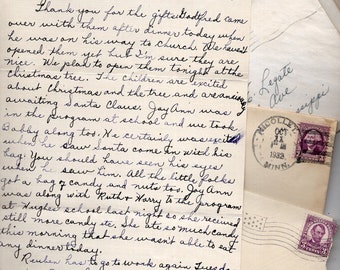 Thank you for the gifts Godfred came
over with them after dinner today when
he was on his way to Church. We haven't
opened them yet but I'm sure they are
nice. We plan to open them tonight at the
christmas tree. The children are excited
about Christmas and the tree and are
awaiting Santa Claus. Joy Ann was
in the program at school and we took
Bobby along too. He certainly was excited
when he saw Santa come in with his
bag. You should have seen his eyes
when he saw him. All the little folks
got a bag of candy and nuts too. Joy Ann
was along with Ruth & Harry to the program
at Hughes school last night so she received
still more candy etc. She ate so much candy
this morning that she wasn't able to eat
any dinner today.
Reuben has to go to work again Tuesd
Legate
Ave
NICOLLET
OCT
1933
MINN.